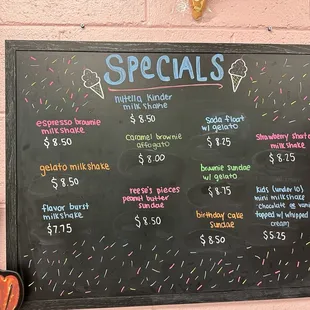 Specials
nutella kinder
milkshake
$8.50
espresso brownie
milkshake
$8.50
caramel brownie
affogato
$8.00
soda float
w/ gelato
$8.25
strawberry short
milkshake
$8.25
gelato milkshake
$8.50
reese's pieces
peanut butter
sundae
$8.50
brownie sundae
w/ gelato
$8.75
flavor burst
milkshake
$7.75
birthday cake
sundae
$8.50
kids (under 10)
mini milkshake
chocolate or
topped w/ whipped
cream
$5.25